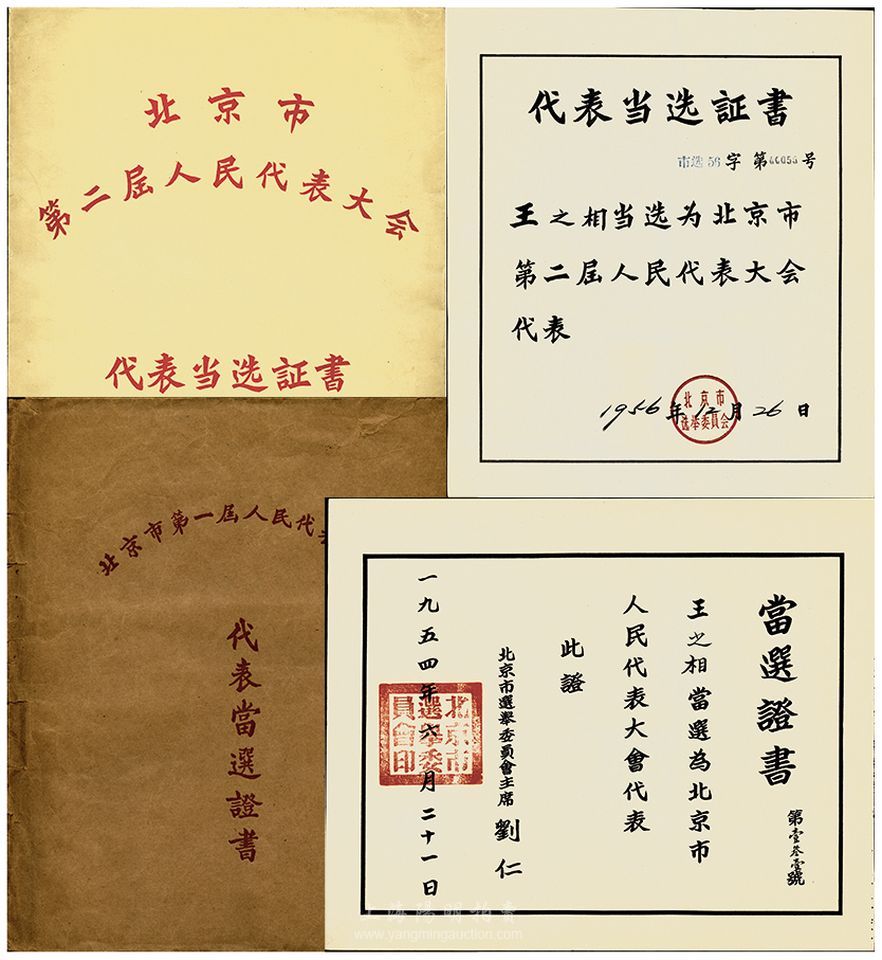 北京市
第二屆人民代表大会
代表当选証書
代表当选証書
市选56字 第00056号
王之相当选为北京市
第二屆人民代表大会
代表
北京市
选举委員会
1956年12月26日
北京市第一屆人民代表
代表當選證書
當選證書
第壹叁壹號
王之相當選為北京市
人民代表大會代表
此證
北京市選舉委員會主席 劉仁
北京市選舉委員會印
一九五四年六月二十一日
上海陽明拍賣
www.yangmingauction.com